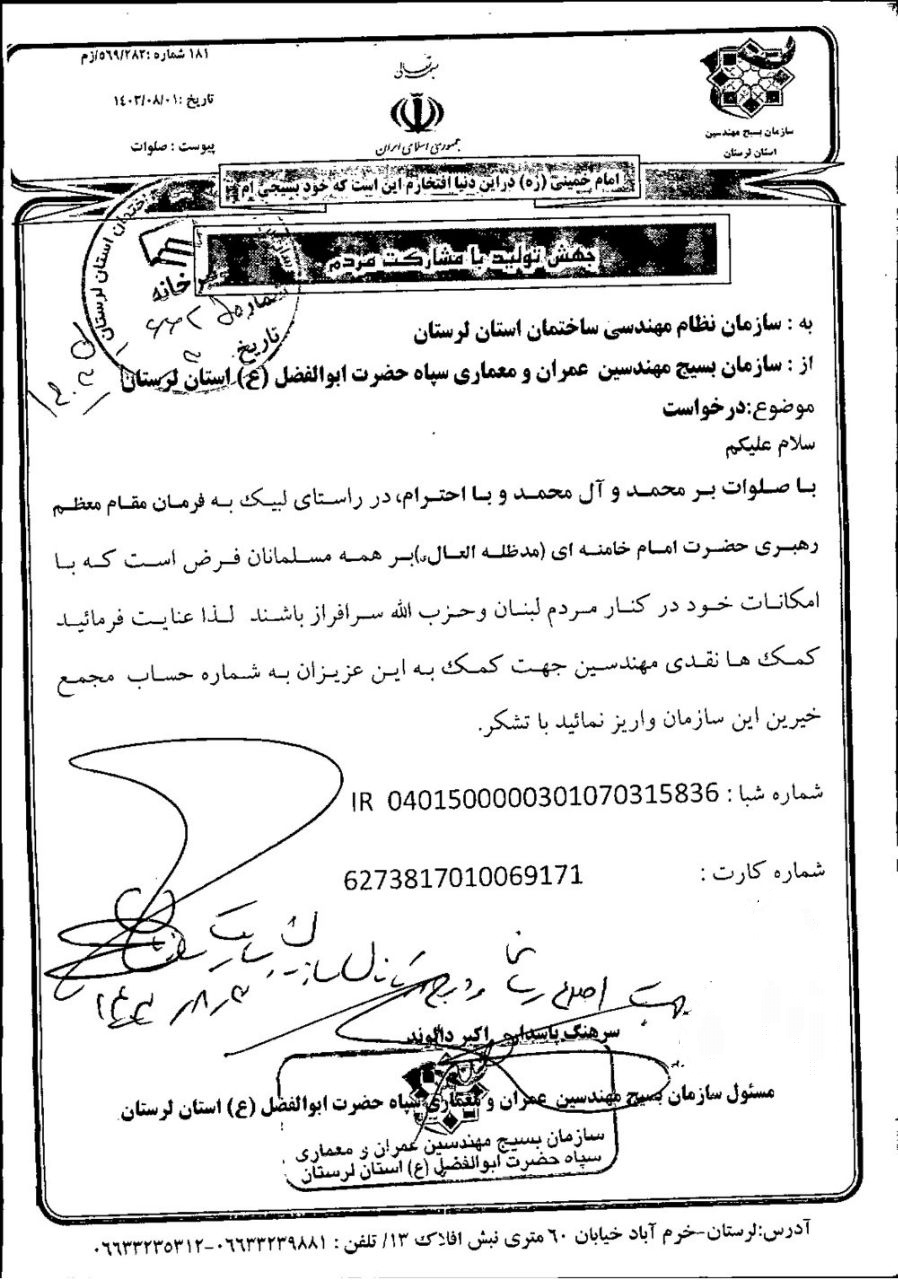 ۱۸۱ شماره :۵۶۹/۲۸۳/زم
تاریخ :۱۴۰۳/۰۸/۰۱
پیوست : صلوات
جمهوری اسلامی ایران
سازمان بسیج مهندسین
استان لرستان
امام خمینی (ره) دراین دنیا افتخارم این است که خود بسیجی ام
جهش تولید با مشارکت مردم
استان لرستان
شماره
تاریخ
به : سازمان نظام مهندسی ساختمان استان لرستان
از : سازمان بسیج مهندسین عمران و معماری سپاه حضرت ابوالفضل (ع) استان لرستان
موضوع:درخواست
سلام علیکم
با صلوات بر محمد و آل محمد و با احترام، در راستای لبیک به فرمان مقام معظم
رهبری حضرت امام خامنه ای (مدظله العالی)بر همه مسلمانان فرض است که با
امکانات خود در کنار مردم لبنان وحزب الله سرافراز باشند لذا عنایت فرمائید
کمک ها نقدی مهندسین جهت کمک به این عزیزان به شماره حساب مجمع
خیرین این سازمان واریز نمائید با تشکر.
شماره شبا : IR 0401500000301070315836
شماره کارت : 6273817010069171
جهت اطلاع رسانی و درج در کانال سازمان
سرهنگ پاسدار اکبر دالوند
مسئول سازمان بسیج مهندسین عمران و معماری سپاه حضرت ابوالفضل (ع) استان لرستان
سازمان بسیج مهندسین عمران و معماری
سپاه حضرت ابوالفضل (ع) استان لرستان
آدرس:لرستان-خرم آباد خیابان ۶۰ متری نبش افلاک ۱۳/ تلفن : ۰۶۶۳۳۲۳۹۸۸۱-۰۶۶۳۳۲۳۵۳۱۲